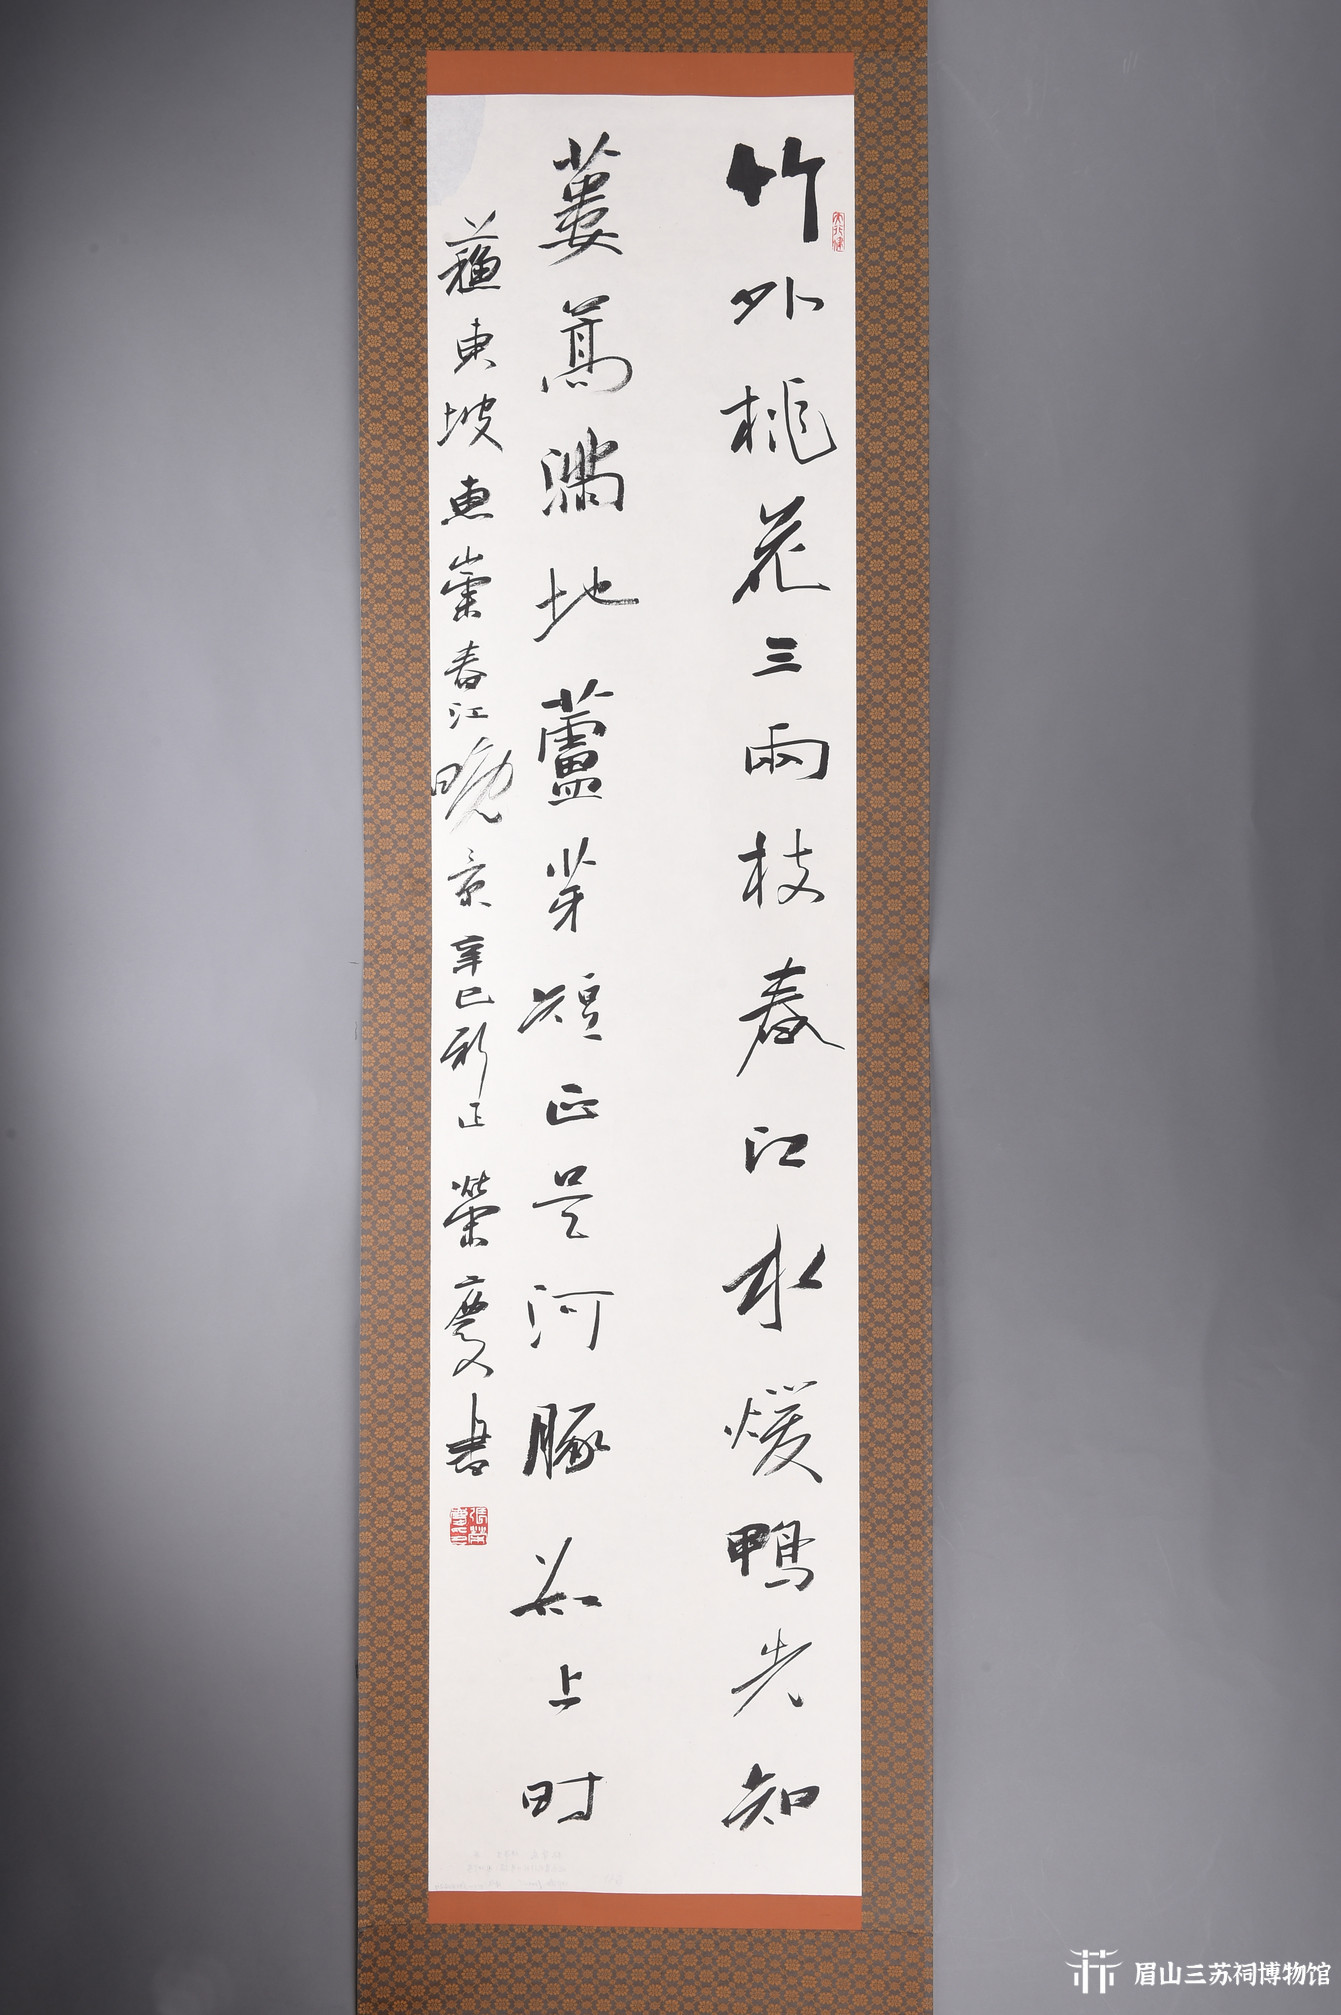 天行健
竹外桃花三兩枝春江水煖鴨先知
蔞蒿滿地蘆芽短正是河豚欲上时
蘓東坡惠崇春江晚景辛巳新正榮慶書
眉山三苏祠博物馆